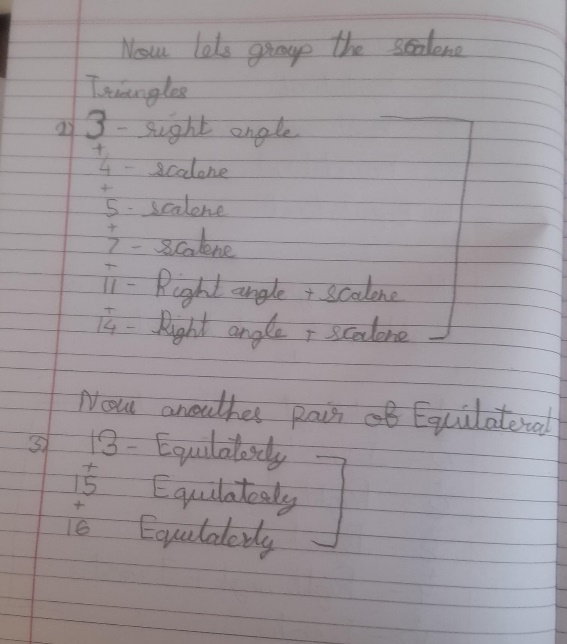 Now lets group the scalene
Triangles
2) 3 - right angle
+
4 - scalene
+
5 - scalene
+
7 - scalene
+
11 - Right angle + scalene
+
14 - Right angle + scalene
Now anouther pair of Equilateral
3) 13 - Equilaterly
+
15 Equilaterly
+
16 Equilaterly